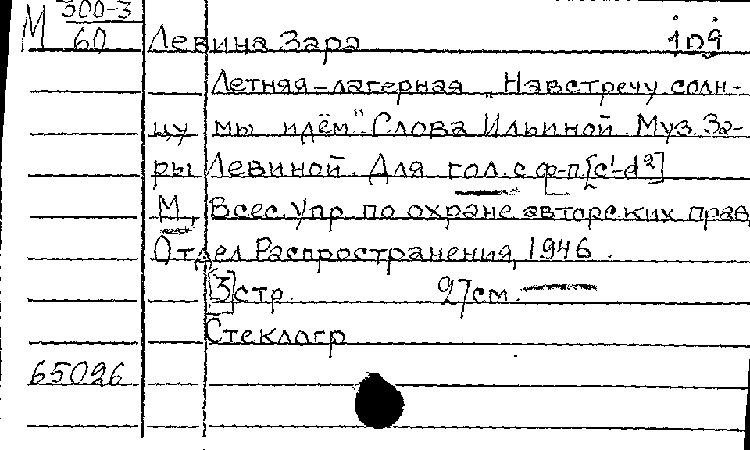 М 300-3
60 Левина Зара
Летняя-лагерная „Навстречу солн-
цу мы идём". Слова Ильиной Муз. За-
ры Левиной. Для гол. с ф-п [c¹-d²]
М., Всес. Упр по охране авторских прав,
Отдел Распространения, 1946.
[3] стр. 27см.
Стеклогр
65026